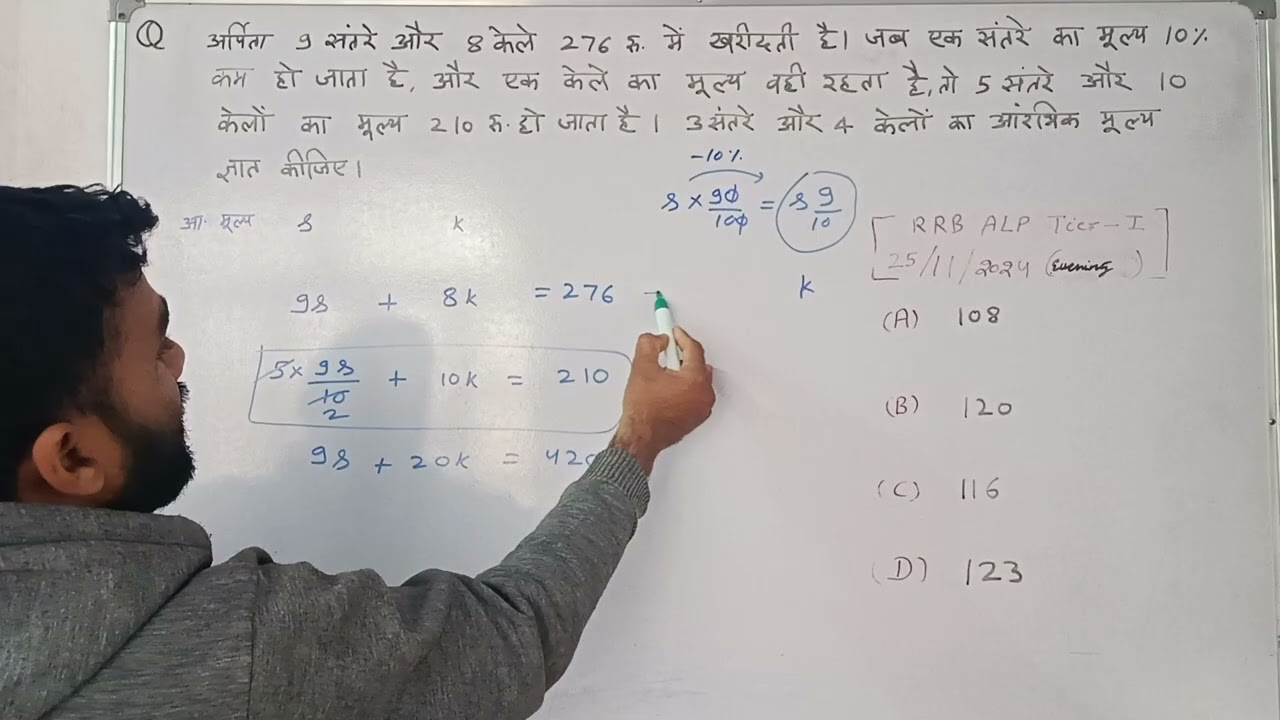 Q अर्पिता 9 संतरे और 8 केले 276 रु. में खरीदती है। जब एक संतरे का मूल्य 10%
कम हो जाता है, और एक केले का मूल्य वही रहता है, तो 5 संतरे और 10
केलों का मूल्य 210 रु. हो जाता है। 3 संतरे और 4 केलों का आंरभिक मूल्य
ज्ञात कीजिए।
-10%
s × 90/100 = s 9/10
आ. मूल्य s k
[RRB ALP Tier-I
25/11/2024 (Evening)]
k
9s + 8k = 276 -
5 × 9s/10 + 10k = 210
2
9s + 20k = 420
(A) 108
(B) 120
(C) 116
(D) 123